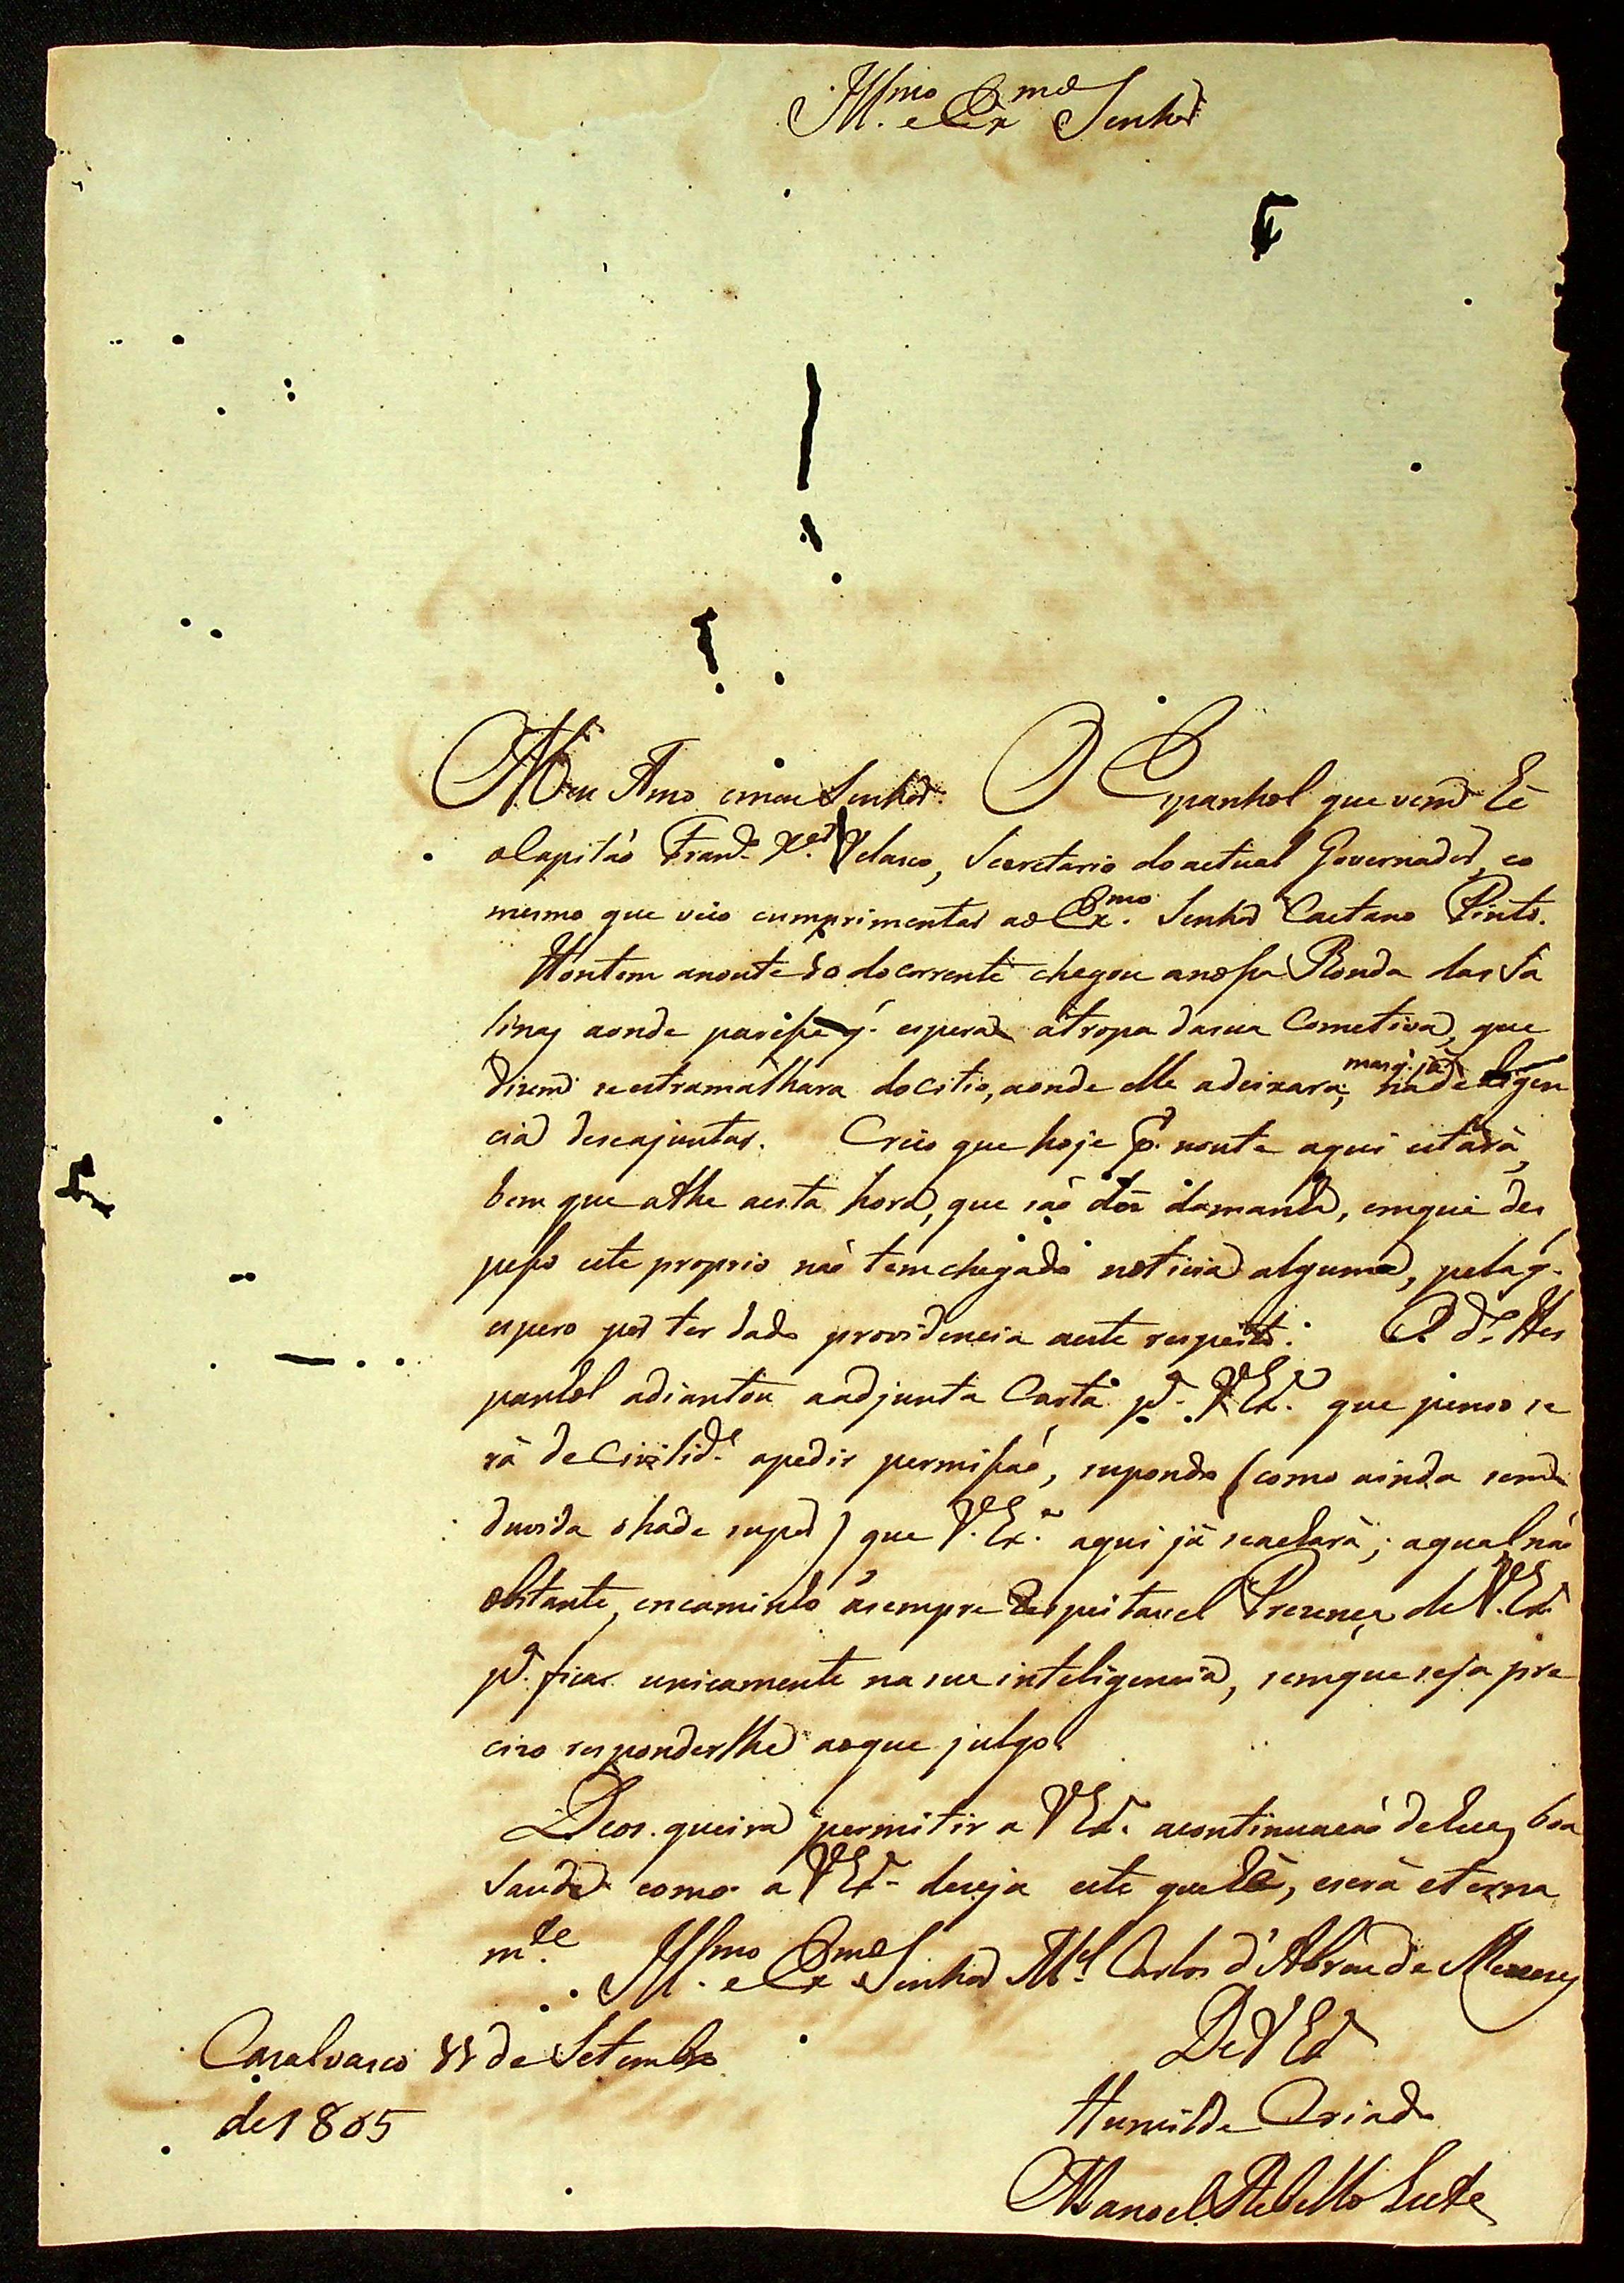 Ill.mo e Ex.mo Senhor
Meu Amo emeu Senhor. O Espanhol que vem hé
oCapitaõ Fran.co X.er Velasco, Secretario doactual Governador, eo
mesmo que veio cumprimentar ao Ex.mo Senhor Caetano Pinto.
Hontem anoute 10 docorrente chegou anossa Ronda das Sa
linas aonde paresse q. espera átropa dasua Cometiva, que
dizem se estramalhara dositio, aonde elle adeixara; mas q. já na deligen
cia deseajuntar. Creio que hoje p.r noute aqui estará,
bem que athe aesta hora, que saõ dez damanhã, emque des
pesso este proprio naõ temchegado noticia alguma, pela q.
espero por ter dado providencia aeste respeito. O d.o Hes
panhol adiantou aadjunta Carta p.a V.Ex.a que penso se
rá de Civilid.e apedir permissaõ, supondo (como ainda sem
duvida ohade supor) que V.Ex.a aqui já seachará; aqual naõ
obstante, encaminho ásempre Respeitavel Prezença de V.Ex.a
p.a ficar unicamente na sua inteligencia, semque seja pre
cizo responderlhe aoque julgo.
Deos queira permitir a V.Ex.a acontinuaçaõ desua boa
Saude como a V.Ex.a deseja este que hé, eserá eterna
m.te Ill.mo e Ex.mo Senhor M.el Carlos d'Abreu de Menezes
De V.Ex.a
Casalvasco 11 de Setembro
de 1805
Humilde Criado
Manoel Rebello Leite